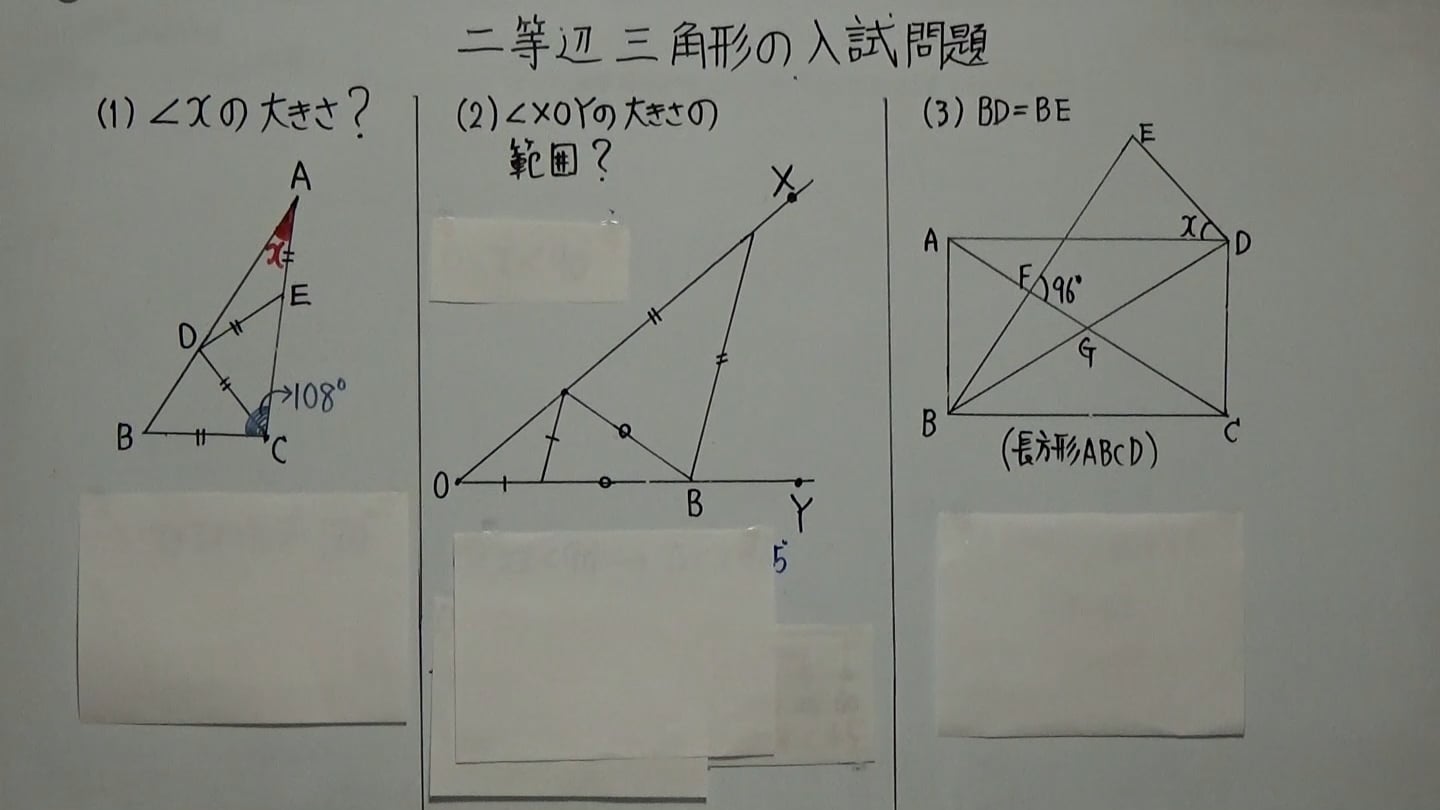 二等辺三角形の入試問題
(1) ∠xの大きさ?
A
x
E
D
108°
B
C
(2) ∠XOYの大きさの
範囲?
X
O
B
Y
5
(3) BD=BE
E
A
x
D
F
96°
G
B
C
(長方形ABCD)